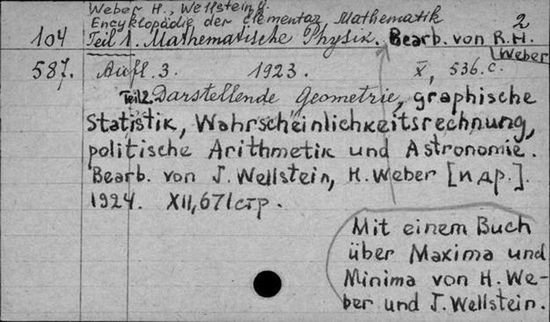 Weber H., Wellstein J.
Encyklopädie der elementar. Mathematik
2
104 Teil 1. Mathematische Physik. Bearb. von R.H.
Weber
587. Aufl. 3. 1923. X, 536.c.
Teil 2. Darstellende Geometrie, graphische
Statistik, Wahrscheinlichkeitsrechnung,
politische Arithmetik und Astronomie.
Bearb. von J. Wellstein, H. Weber [и др.].
1924. XII, 671 стр.
Mit einem Buch
über Maxima und
Minima von H. We-
ber und J. Wellstein.